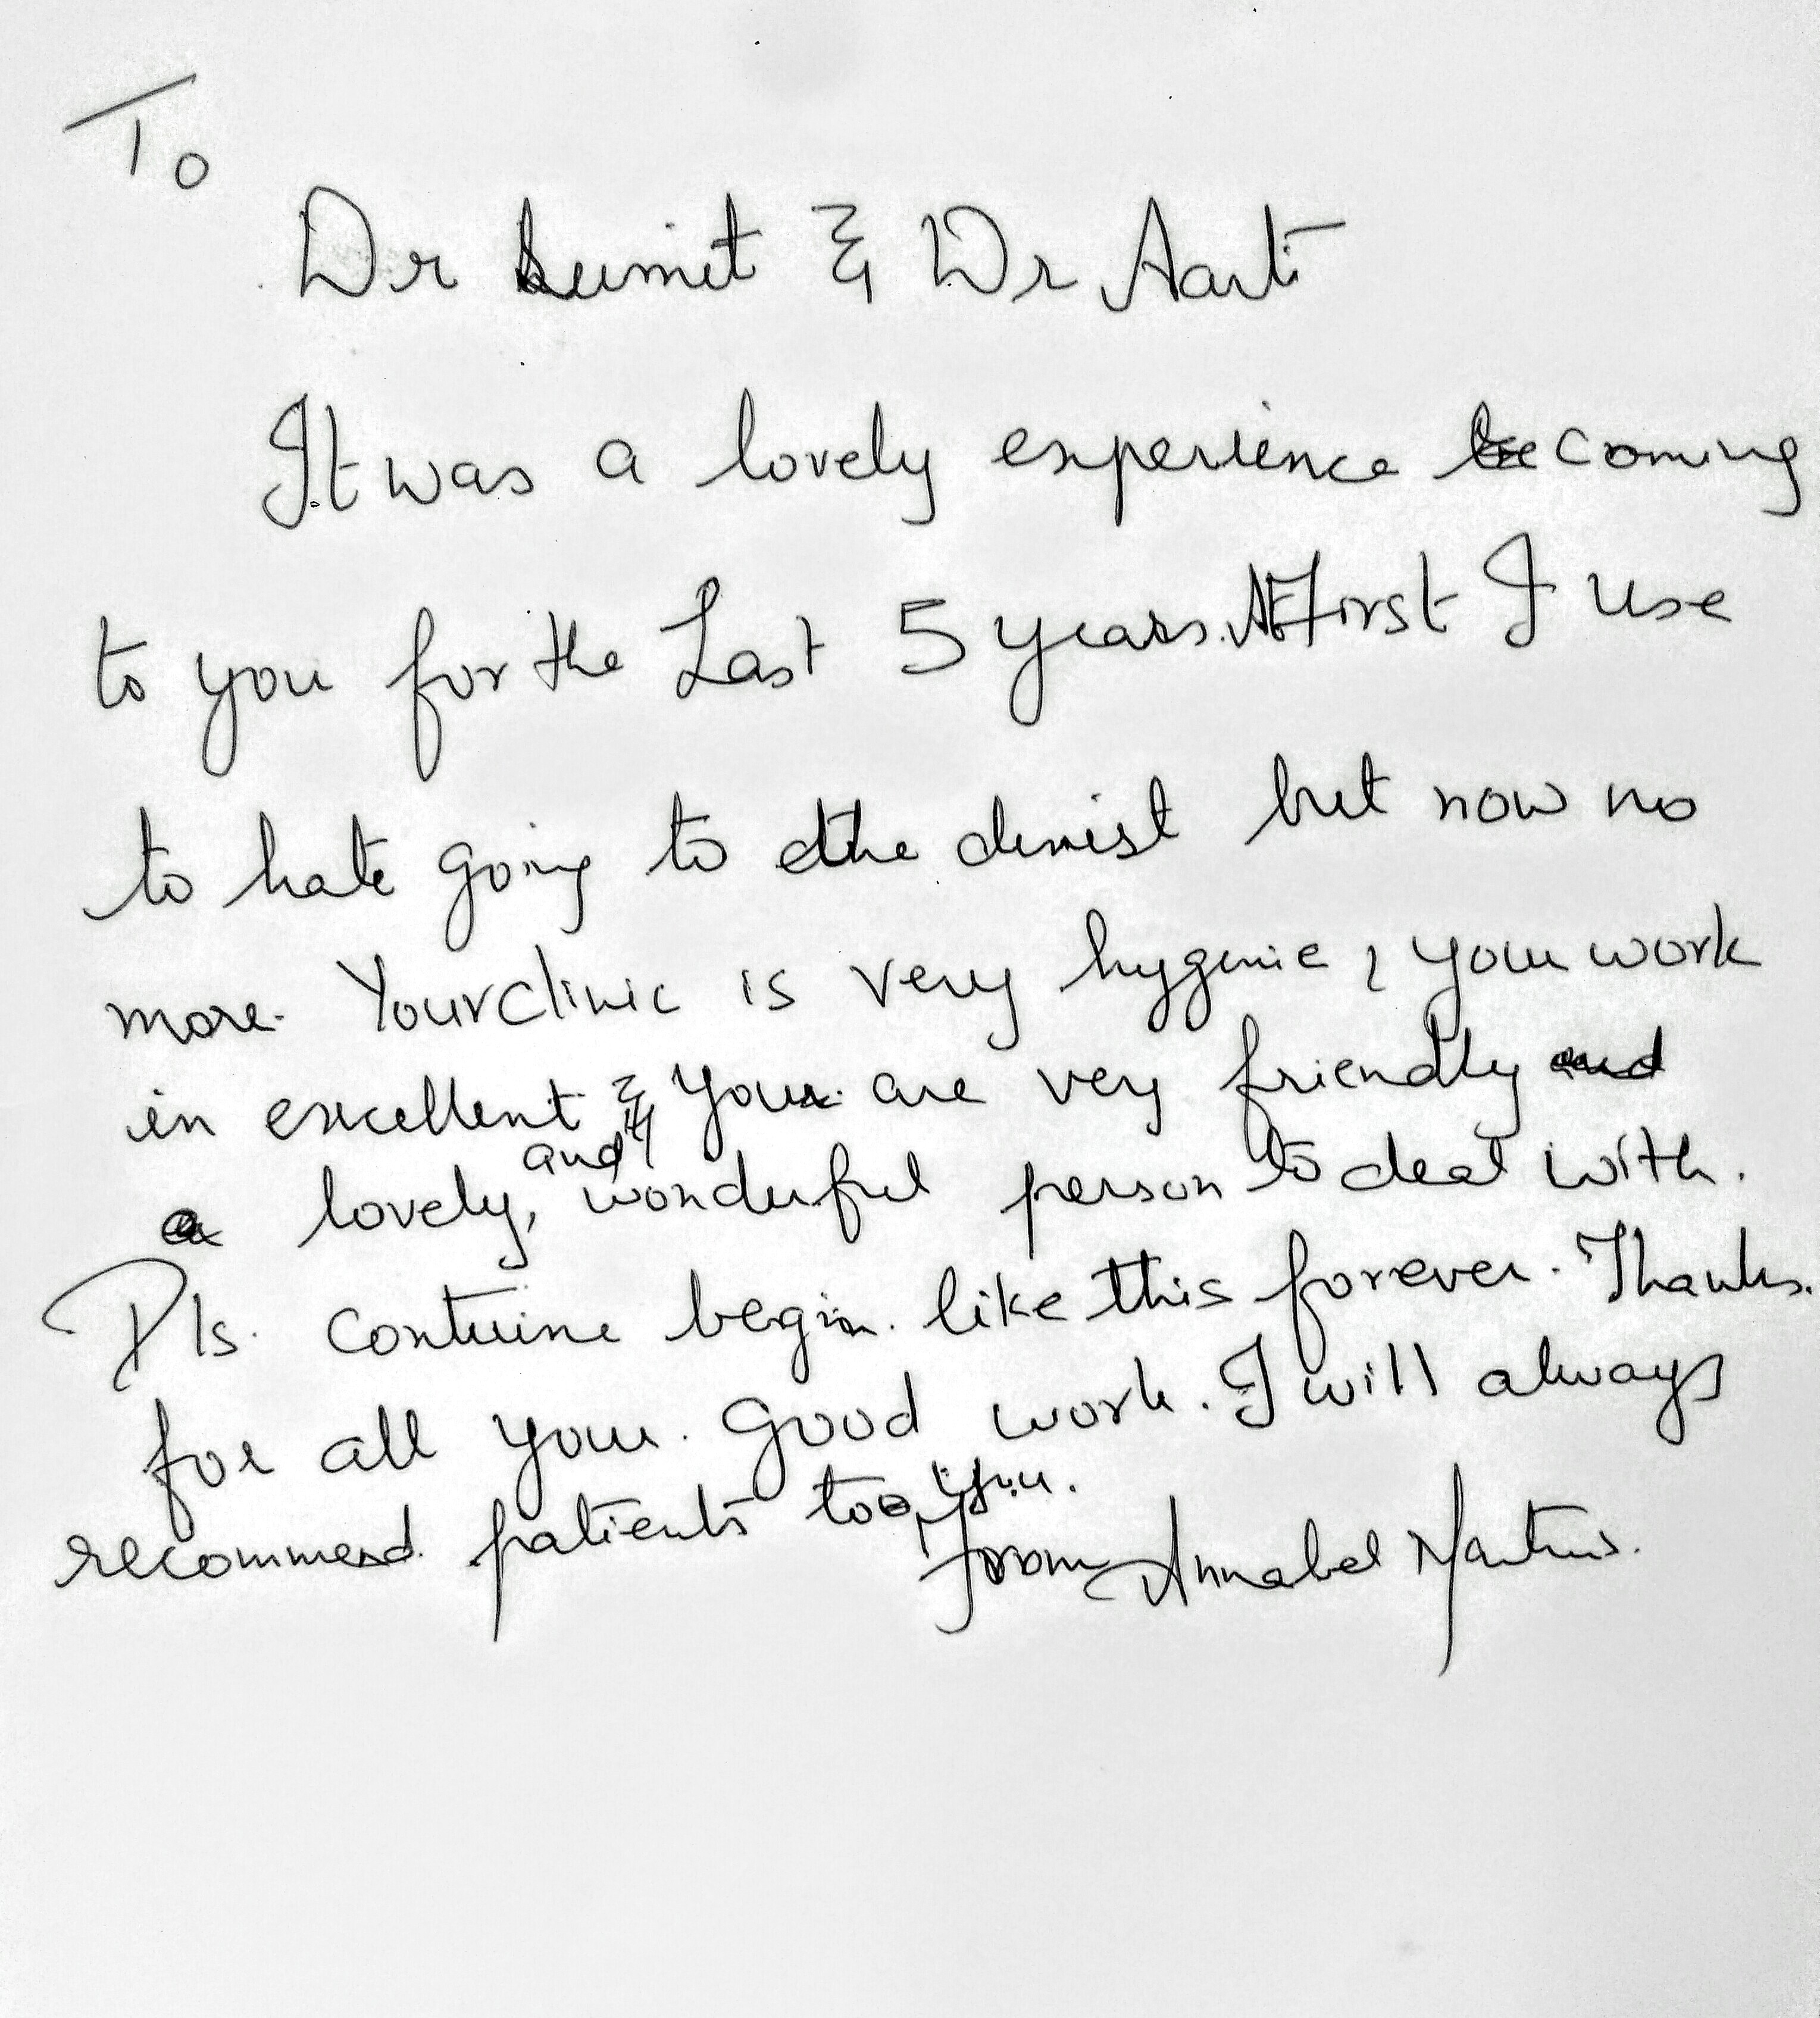 To
Dr Sumit & Dr Aarti
It was a lovely experience coming
to you for the Last 5 years. At First I use
to hate going to the denist but now no
more. Your clinic is very hygenic, your work
in excellent & you are very friendly
a lovely, and wonderful person to deal with.
Pls. contuine begin like this forever. Thanks.
for all your good work. I will always
recommend patients to you.
From Annabel Martins.